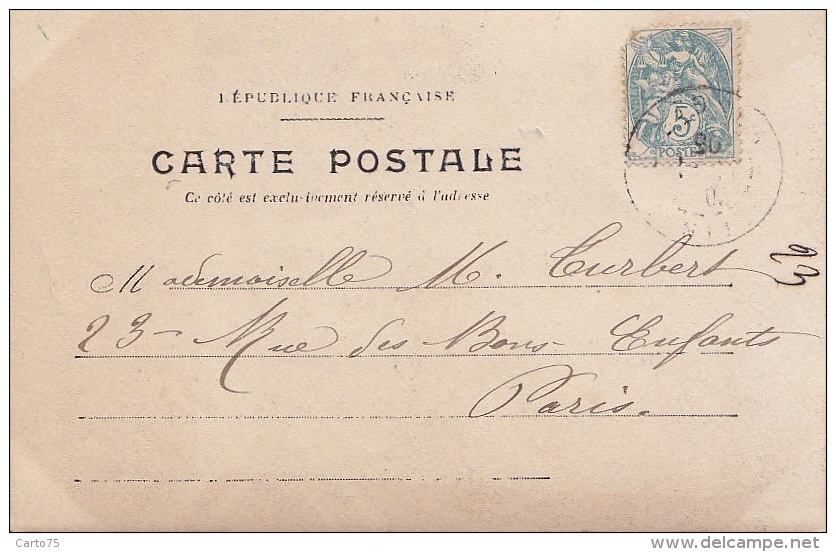 RÉPUBLIQUE FRANÇAISE
CARTE POSTALE
Ce côté est exclusivement réservé à l'adresse
5
POSTES
05
Mademoiselle M. Curbert
23 - Rue des Bons-Enfants
Paris.
23
Carto75
www.delcampe.net